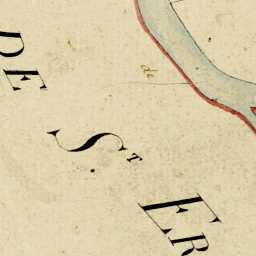 DE S.T ER